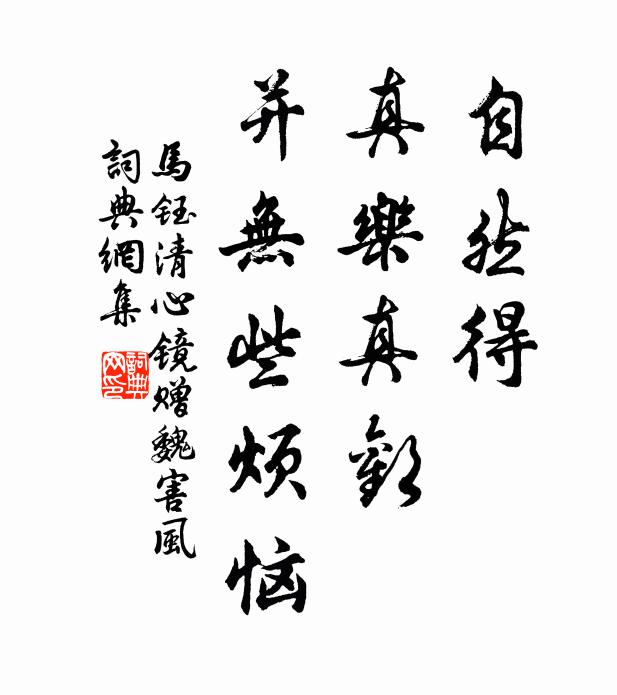 自然得
真樂真歡
并無些烦恼
馬鈺清心鏡赠魏害風
詞典網集
詞典网印